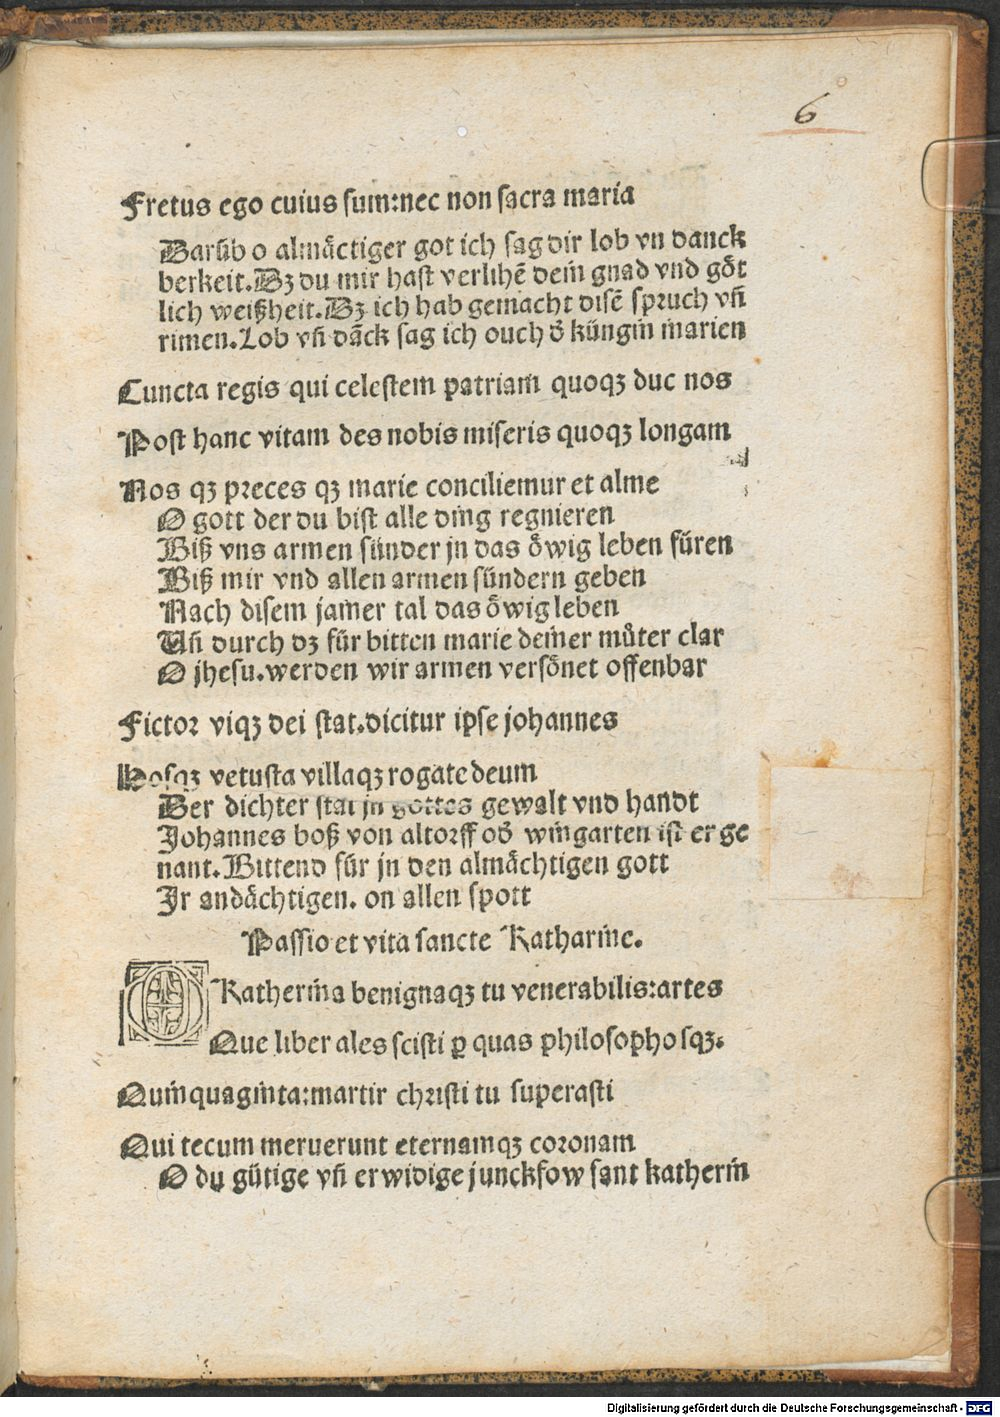 6
Fretus ego cuius sum:nec non sacra maria
Darūb o almåctiger got ich sag dir lob vn danck
berkeit.Dz du mir hast verlihē dein gnad vnd göt
lich weißheit.Dz ich hab gemacht disē spruch vn̄
rimen.Lob vn̄ dāck sag ich ouch d̓ küngin marien
Cuncta regis qui celestem patriam quoqꝫ duc nos
Post hanc vitam des nobis miseris quoqꝫ longam
Nos qꝫ preces qꝫ marie conciliemur et alme
O gott der du bist alle ding regnieren
Biß vns armen sünder jn das öwig leben füren
Biß mir vnd allen armen sündern geben
Nach disem jamer tal das öwig leben
Vn̄ durch dz für bitten marie deiner můter clar
O jhesu.werden wir armen versönet offenbar
Fictor viqꝫ dei stat.dicitur ipse johannes
Hosqꝫ vetusta villaqꝫ rogate deum
Der dichter stat jn gottes gewalt vnd handt
Johannes boß von altorff od̓ wingarten ist er ge
nant.Bittend für jn den almächtigen gott
Jr andächtigen. on allen spott
Passio et vita sancte Katharine.
O Katherina benignaqꝫ tu venerabilis:artes
Que liber ales scisti ꝑ quas philosophosqꝫ.
Quinquaginta:martir christi tu superasti
Qui tecum meruerunt eternamqꝫ coronam
O du gütige vn̄ erwidige junckfow sant katherin
Digitalisierung gefördert durch die Deutsche Forschungsgemeinschaft - DFG